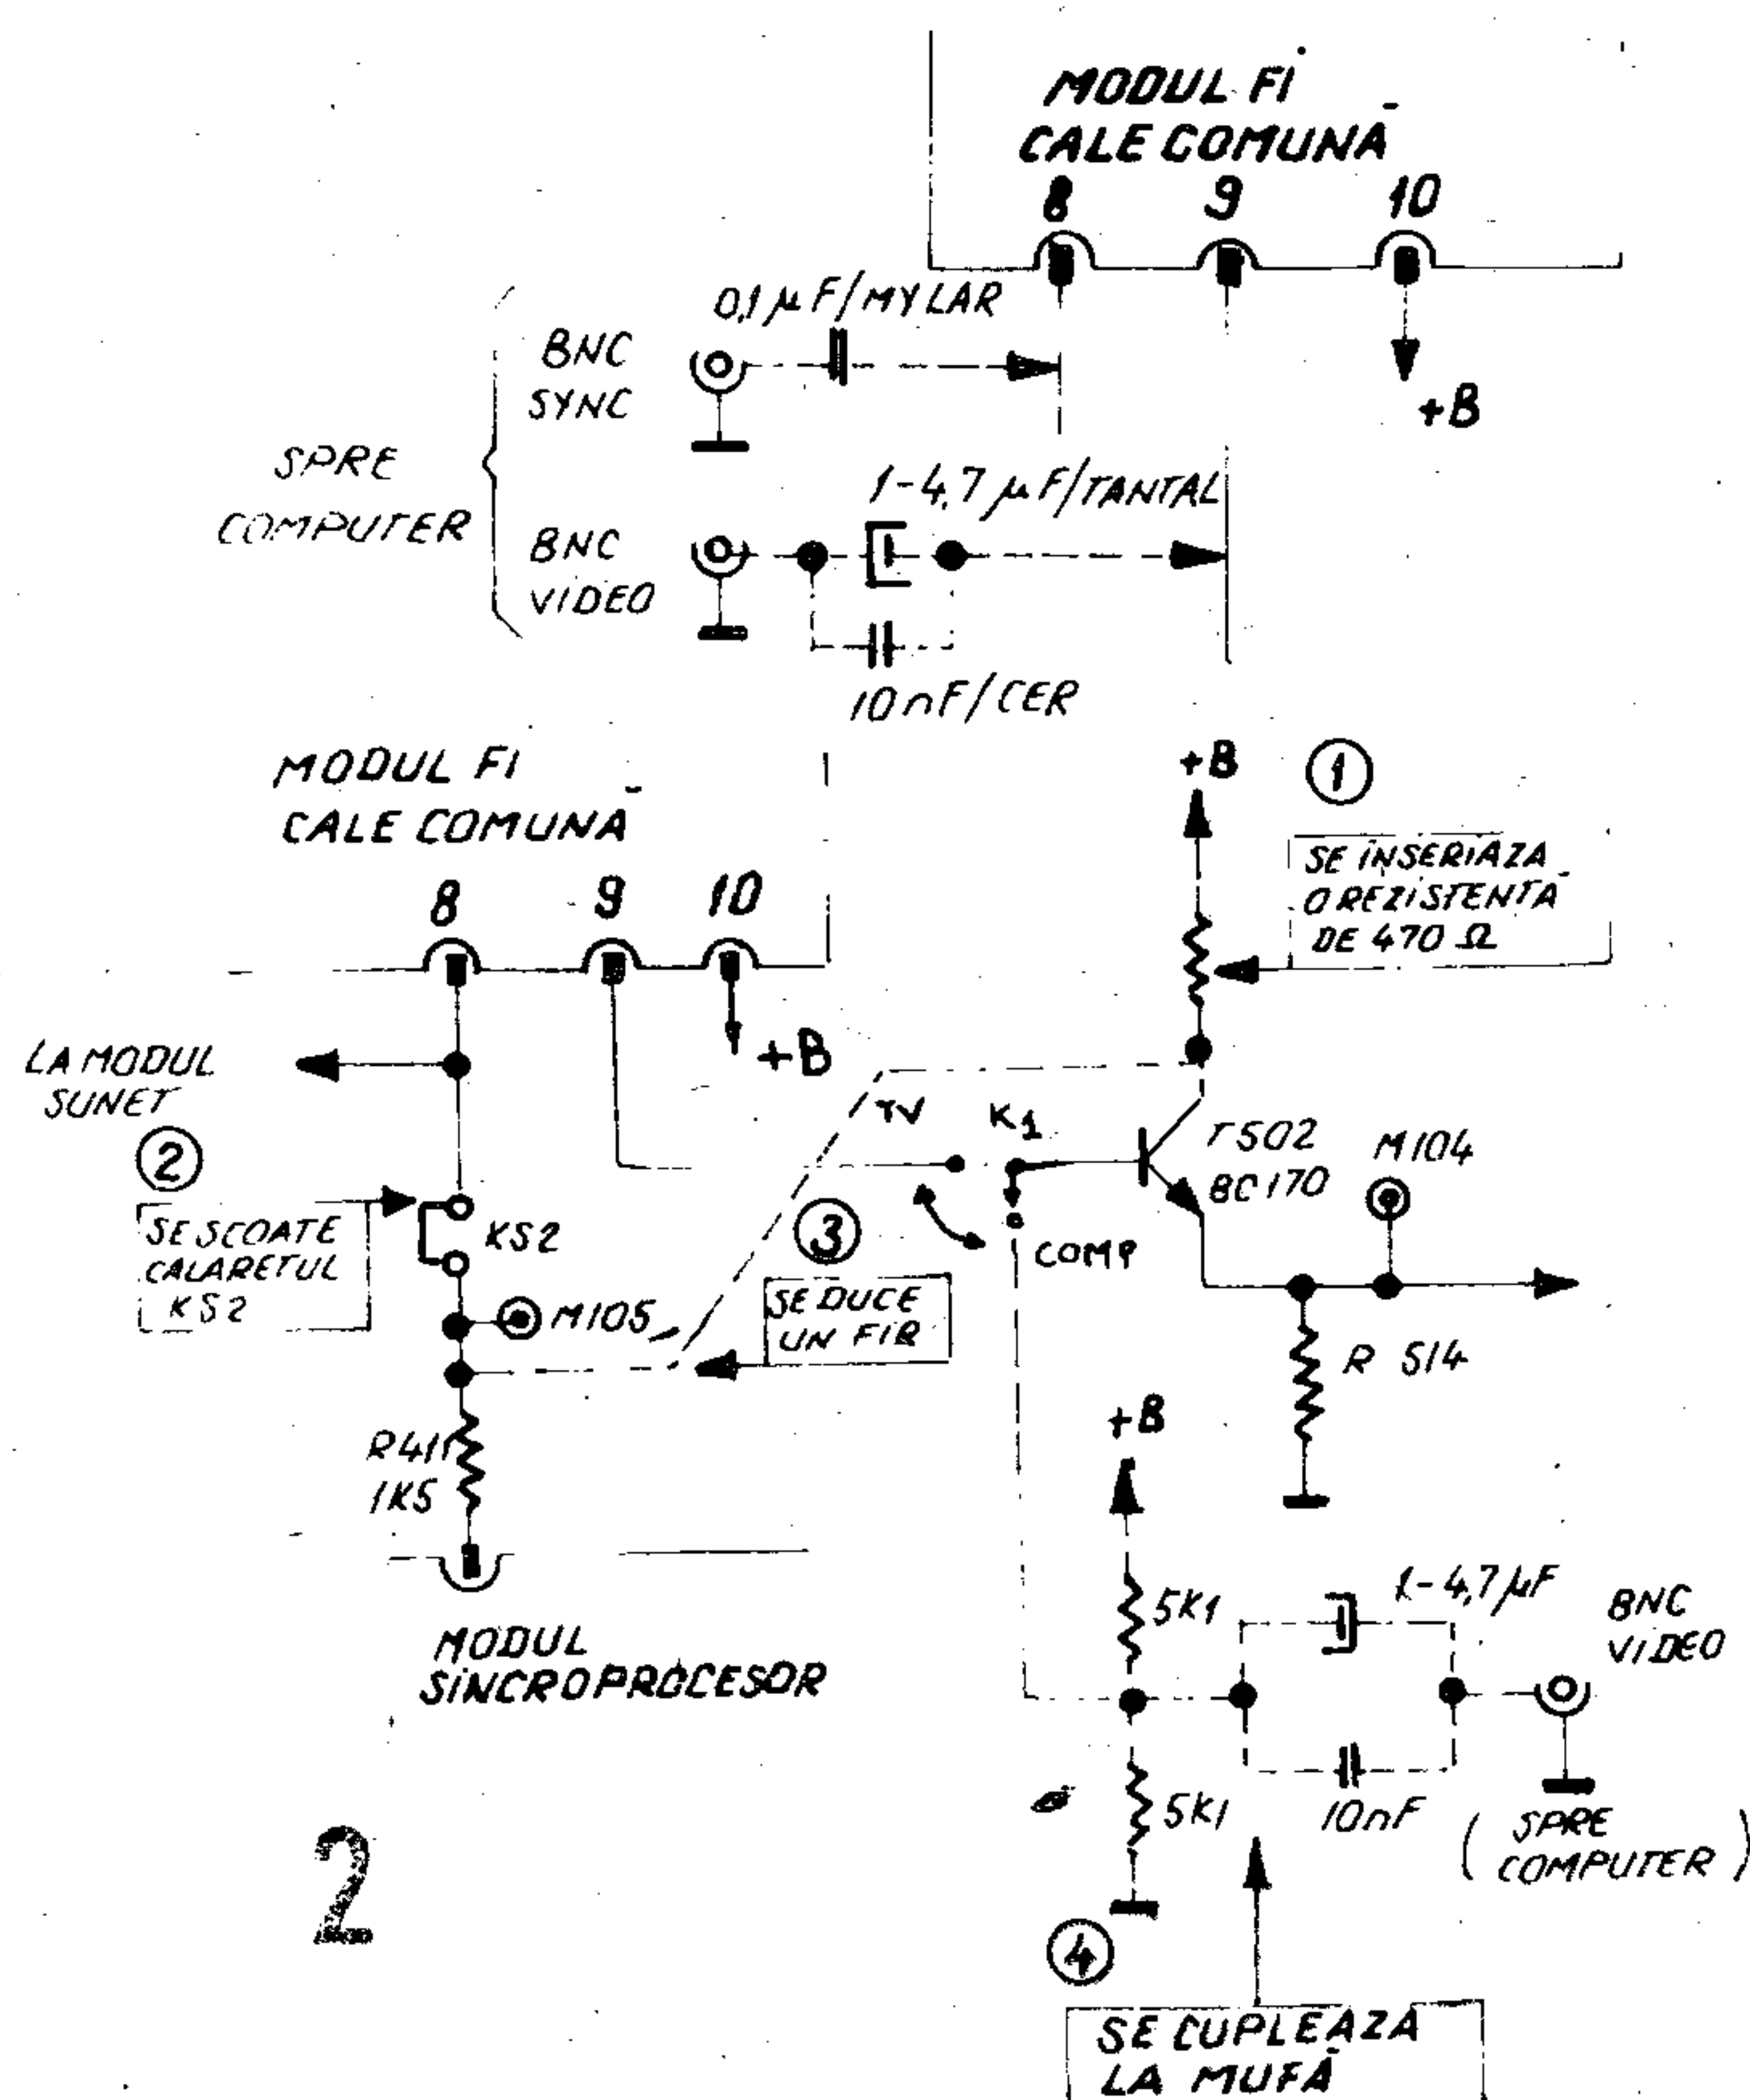 MODUL FI
CALE COMUNĂ
8 9 10
0,1 µF/MYLAR
BNC
SYNC
+B
SPRE
COMPUTER
1-4,7 µF/TANTAL
BNC
VIDEO
10 nF/CER
MODUL FI
CALE COMUNĂ
8 9 10
+B
1
SE INSERIAZA
O REZISTENTA
DE 470 Ω
+B
LA MODUL
SUNET
TV
K1
T502
BC170
M104
2
SE SCOATE
CALARETUL
KS2
KS2
3
COMP
SE DUCE
UN FIR
M105
R 514
R411
1K5
+B
MODUL
SINCROPROCESOR
5K1
1-4,7 µF
BNC
VIDEO
5K1
10nF
( SPRE
COMPUTER )
2
4
SE CUPLEAZA
LA MUFĂ